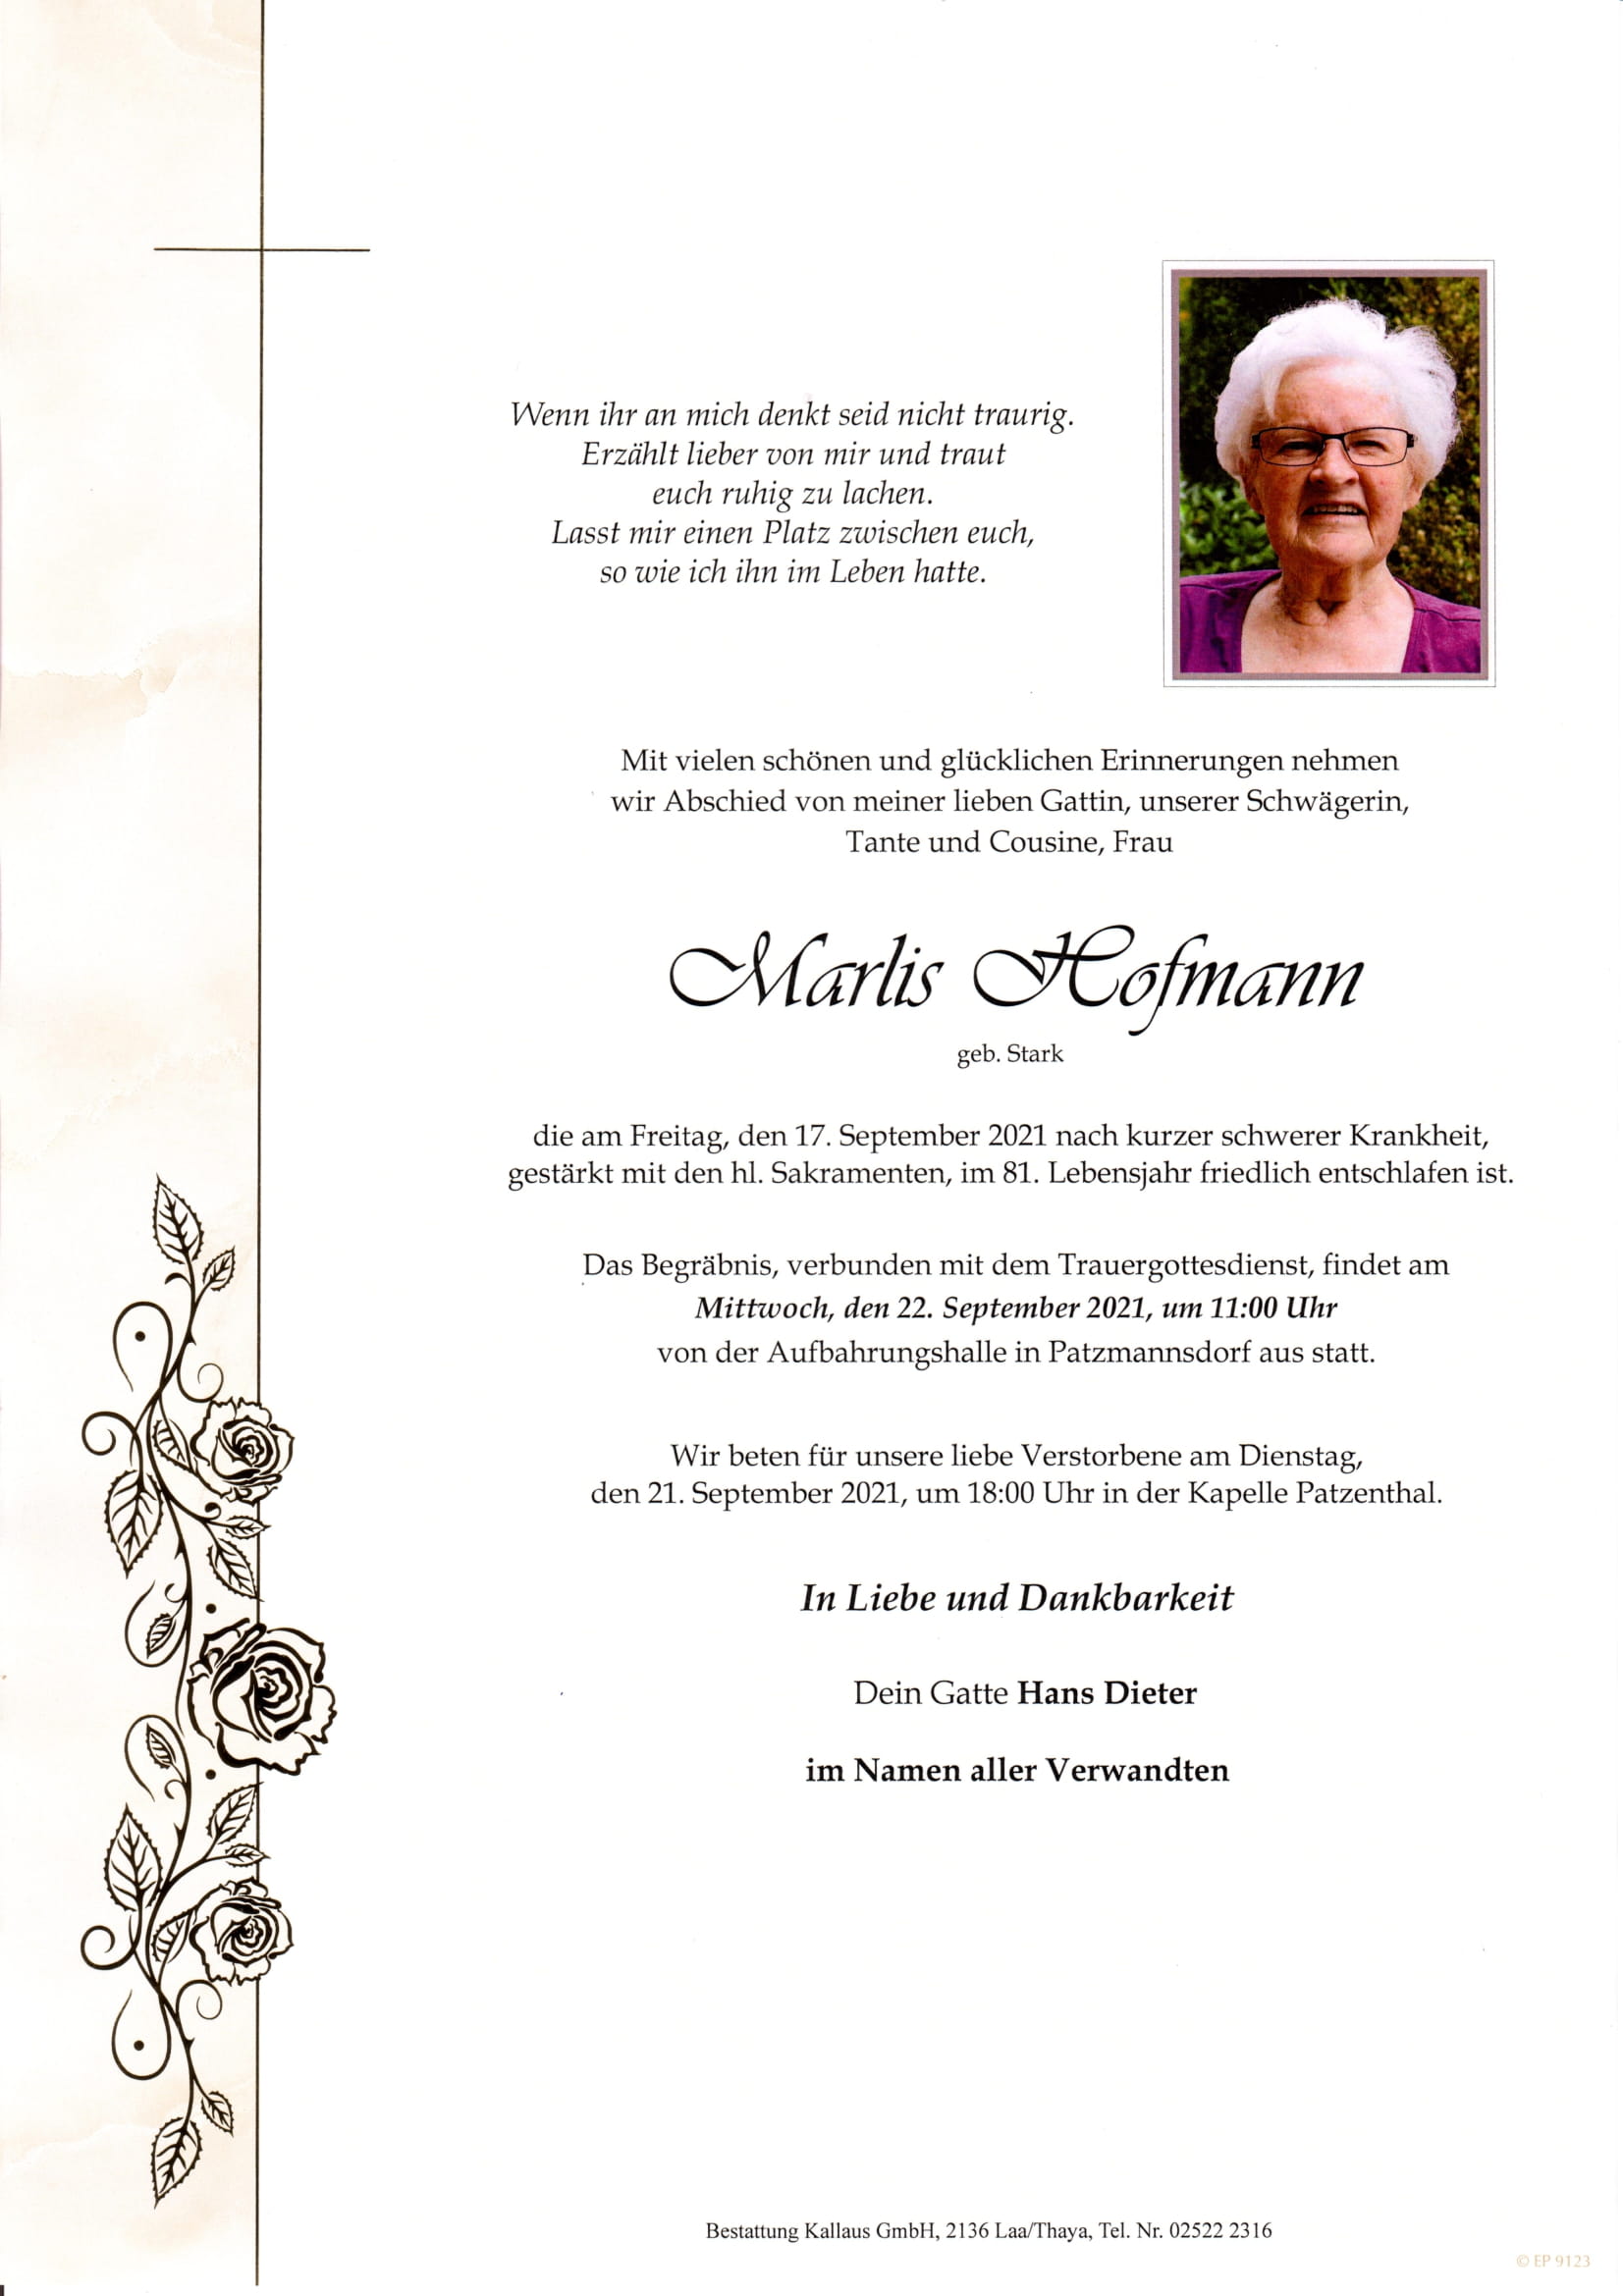 Wenn ihr an mich denkt seid nicht traurig.
Erzählt lieber von mir und traut
euch ruhig zu lachen.
Lasst mir einen Platz zwischen euch,
so wie ich ihn im Leben hatte.
Mit vielen schönen und glücklichen Erinnerungen nehmen
wir Abschied von meiner lieben Gattin, unserer Schwägerin,
Tante und Cousine, Frau
Marlis Hofmann
geb. Stark
die am Freitag, den 17. September 2021 nach kurzer schwerer Krankheit,
gestärkt mit den hl. Sakramenten, im 81. Lebensjahr friedlich entschlafen ist.
Das Begräbnis, verbunden mit dem Trauergottesdienst, findet am
Mittwoch, den 22. September 2021, um 11:00 Uhr
von der Aufbahrungshalle in Patzmannsdorf aus statt.
Wir beten für unsere liebe Verstorbene am Dienstag,
den 21. September 2021, um 18:00 Uhr in der Kapelle Patzenthal.
In Liebe und Dankbarkeit
Dein Gatte Hans Dieter
im Namen aller Verwandten
Bestattung Kallaus GmbH, 2136 Laa/Thaya, Tel. Nr. 02522 2316
© EP 9123